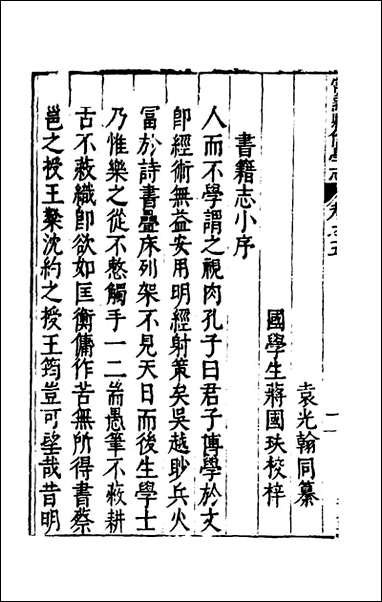 常熟縣儒學志 卷之五
袁光翰同纂
國學生蔣國玞校梓
書籍志小序
人而不學謂之視肉孔子曰君子博學於文
即經術無益安用明經射策矣吳越眇兵火
冨於詩書疊床列架不見天日而後生學士
乃惟樂之從不憗觸手一二耑愚筆不菽耕
舌不菽織即欲如匡衡傭作苦無所得書蔡
邕之授王粲沈約之授王筠豈可望哉昔明